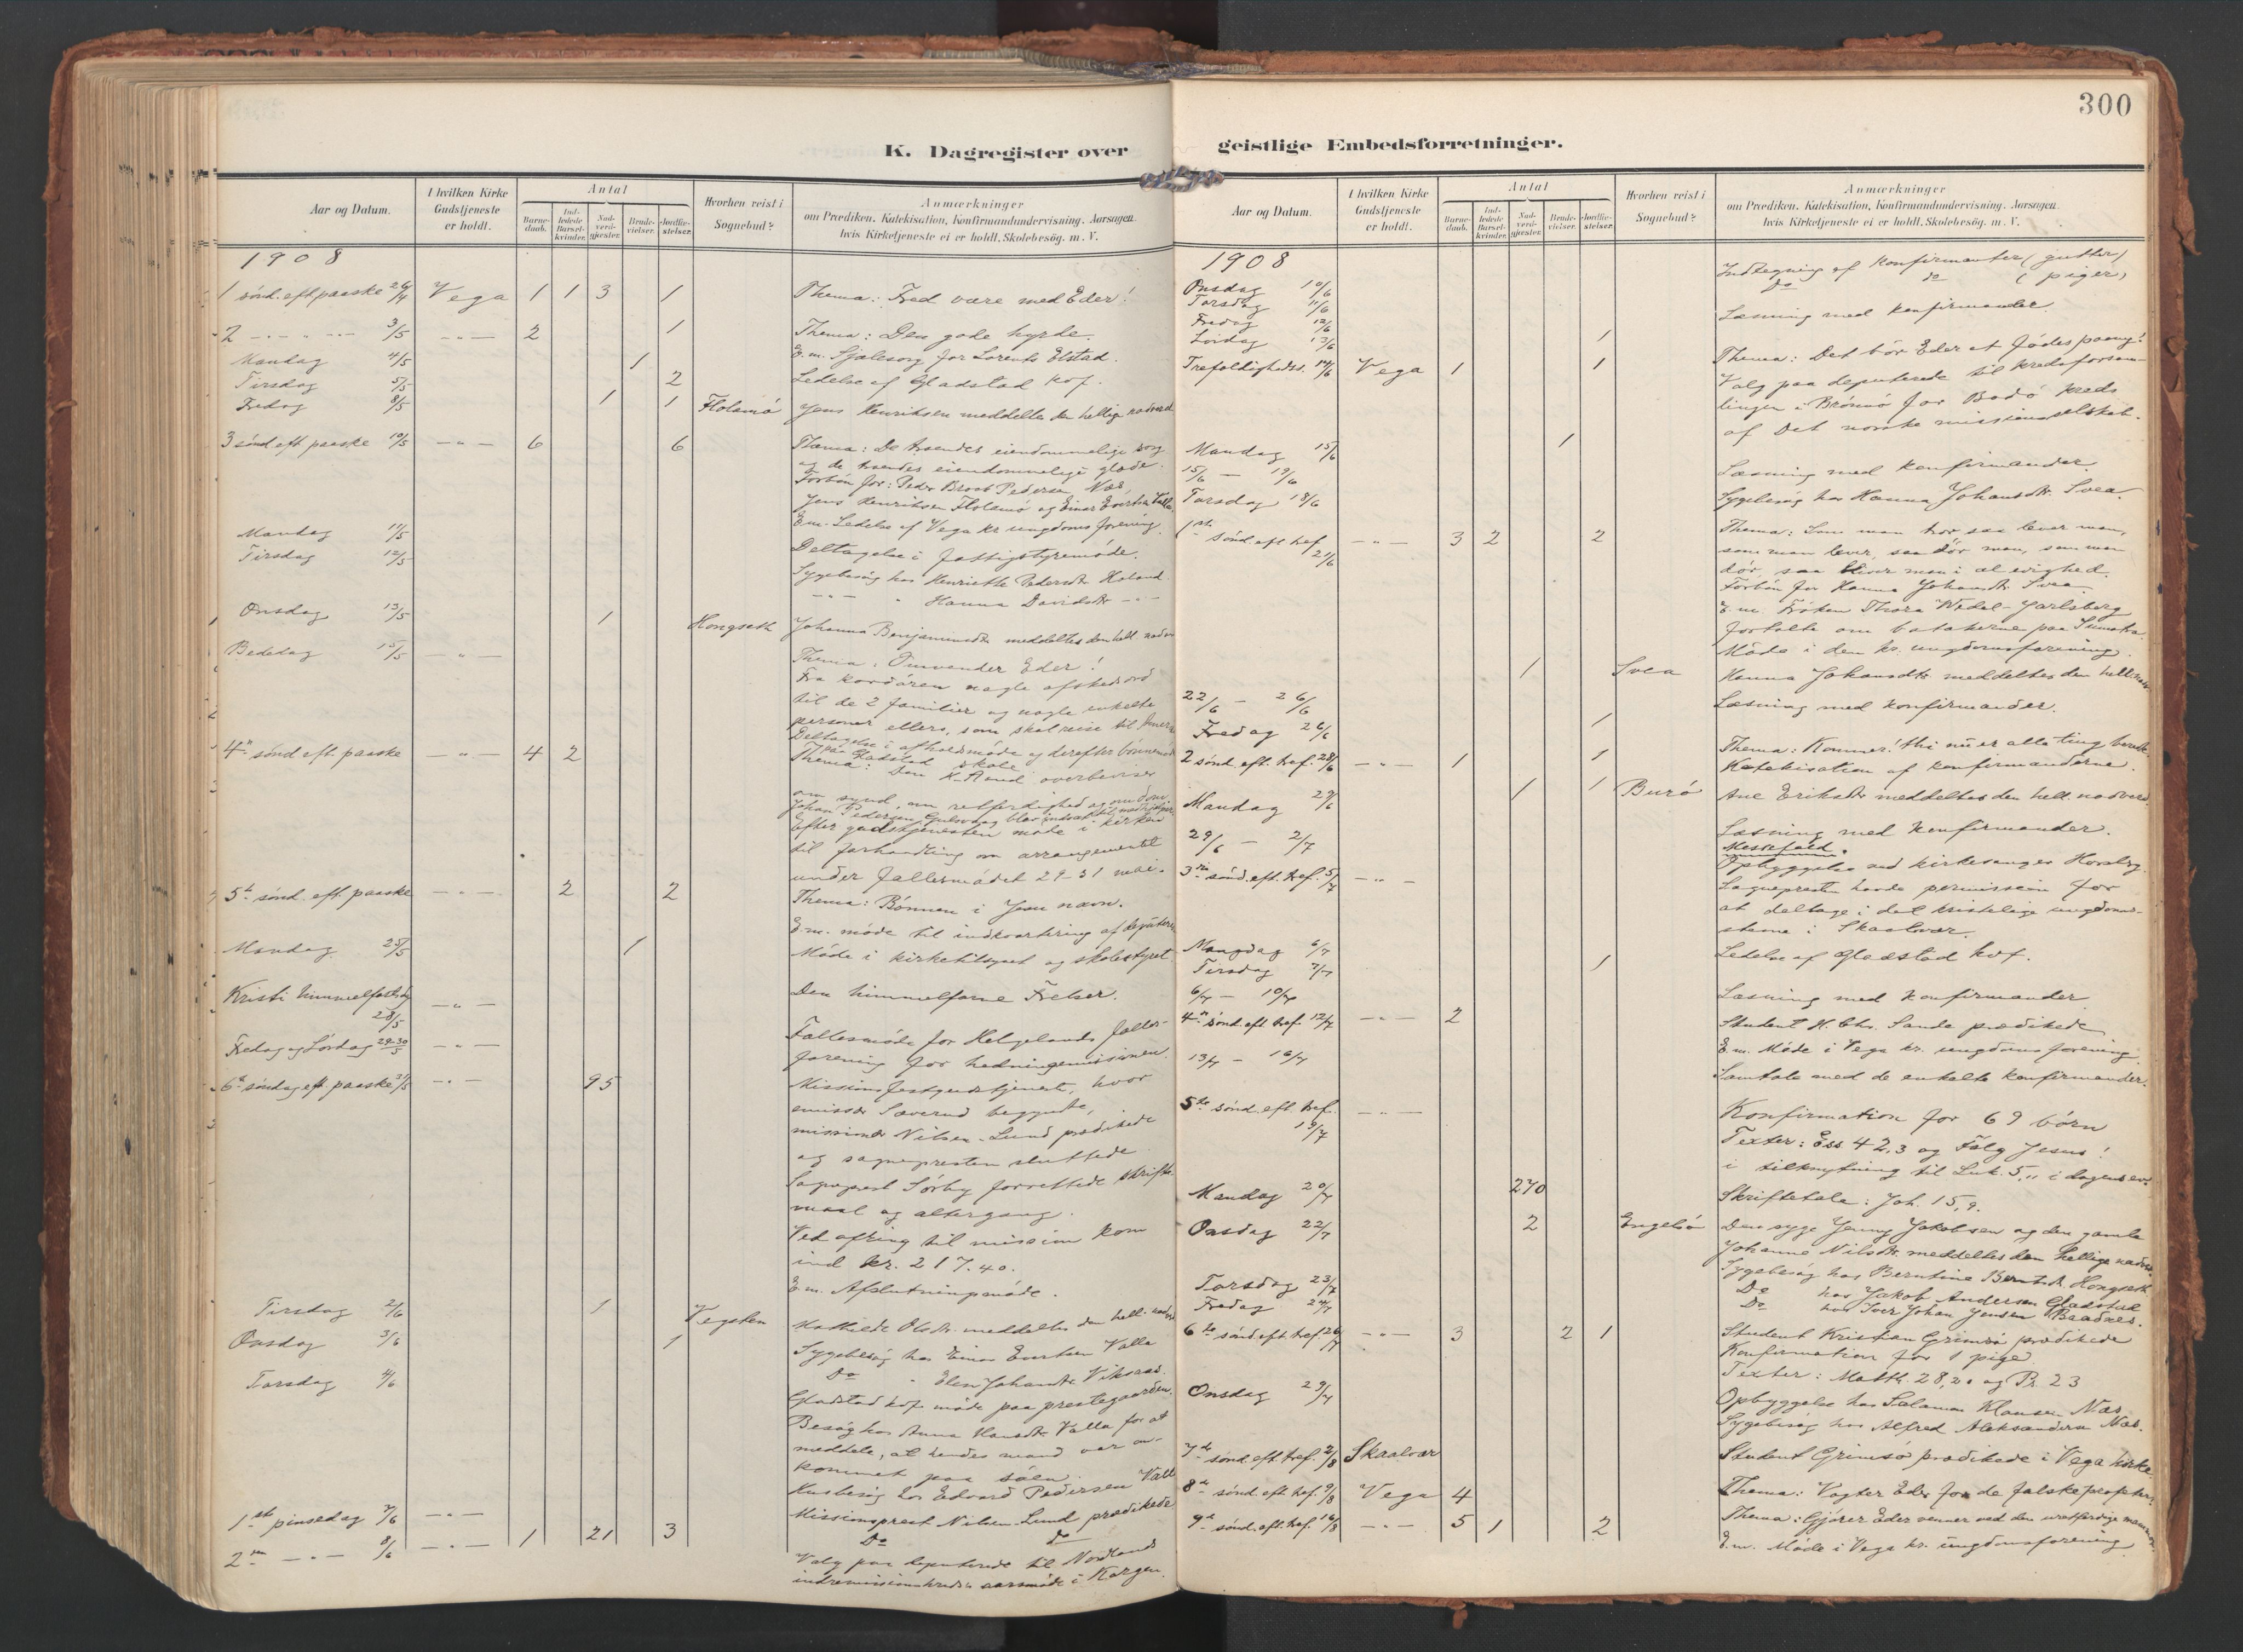 300
K. Dagregister over
geistlige Embedsforretninger.
Aar og Datum.
I hvilken Kirke Gudstjeneste er holdt.
Antal
Barnedaab.
Indledede Barselkvinder.
Nadverdgjester.
Brudevielser.
Jordfæstelser.
Hvorhen reist i Sognebud?
Anmærkninger
om Prædiken, Katekisation, Konfirmandundervisning, Aarsagen,
hvis Kirketjeneste ei er holdt, Skolebesög, m. V.
1908
1 sönd. eft. paaske 26/4 Vega 1 1 3 1 Thema: Fred være med Eder!
2 – " – " – 3/5 – " – 2 1 Thema: Den gode hyrde.
E.m. Sjælesorg for Lorents Elstad.
Mandag 4/5 1
Tirsdag 5/5 2 Ledelse af Gladstad kof.
Fredag 8/5 1 1 Floksmö Jens Henriksen meddeltes den hellige nadverd
3 sönd. eft. paaske 10/5 – " – 6 6 Thema: De troendes eiendommelige sorg
og de troendes eiendommelige glæde.
Forbön for: Peder Broch Pedersen Næs,
Jens Henriksen og Einar Evertsen Valla.
E.m. Ledelse af Vega kr. ungdomsforening.
Mandag 11/5 Deltagelse i fattigstyremöde.
Tirsdag 12/5 Sygebesög hos Henriette Pedersdtr.
– " – " Hanna Davidsdtr – " –
Onsdag 13/5 1 Hongseth Johanna Benjaminsdtr meddeltes den hell. nadverd
Bededag 15/5 – " – Thema: Omvender Eder!
Fra kordören nogle afskedsord
til de 2 familier og nogle enkelte
personer ellers, som skal reise til
Deltagelse i afholdsmöde og derefter bönnemöde
paa Gladstad skole
4de sönd. eft. paaske – " – 4 2 Thema: Den H. Aand overbeviser
om synd, om retfærdighed og om dom.
Johan Pedersen
Efter gudstjenesten möde i kirken
til forhandling om arrangementet
under fællesmödet 29–31 mai.
5te sönd. eft. paaske – " – 2 2 Thema: Bönnen i Jesu navn.
E.m. möde til indkvartering af
Mandag 25/5 1 Möde i kirketilsynet og skolestyret
Kristi himmelfartsdag 28/5 – " – Den himmelfarne Frelser.
Fredag og Lördag 29-30/5 – " – Fællesmöde for Helgelands fælles-
forening for hedningemissionen.
6te söndag eft. paaske 31/5 – " – 95 Missionsfestgudstjeneste, hvor
emissær Sæverud begyndte,
missionær Nilsen-Lund prædikede
og sognepresten sluttede.
Sogneprest Sörby forrettede skrifte-
maal og altergang.
Ved ofring til mission kom
ind kr. 217.40.
E.m. Afslutningsmöde.
Tirsdag 2/6 1 Vegsten Mathilde Olsdtr. meddeltes den hell. nadverd
Onsdag 3/6 1 Sygebesög hos Einar Evertsen Valla
Do " Elen Johansdtr Viksaas.
Torsdag 4/6 Gladstad kof möde paa prestegaarden.
Besög hos Anna Hansdtr Valla for at
meddele, at hendes mand var om-
kommet paa söen.
Husbesög hos Edvard Pedersen Valla
1ste pinsedag 7/6 Missionsprest Nilsen-Lund prædikede
2den – " – 8/6 – " – 1 21 3 Do Do
Valg paa deputerede til Nordlands
indremissionskreds's aarsmöde i Korgen.
Aar og Datum.
I hvilken Kirke Gudstjeneste er holdt.
Antal
Barnedaab.
Indledede Barselkvinder.
Nadverdgjester.
Brudevielser.
Jordfæstelser.
Hvorhen reist i Sognebud?
Anmærkninger
om Prædiken, Katekisation, Konfirmandundervisning, Aarsagen,
hvis Kirketjeneste ei er holdt, Skolebesög, m. V.
1908
Onsdag 10/6 Indtegning af Konfirmanter (gutter)
Torsdag 11/6 Do do (piger)
Fredag 12/6 Læsning med konfirmander.
Lördag 13/6 1
Trefoldighedss. 14/6 Vega 1 1 Thema: Det bör Eder at födes paany!
Valg paa deputerede til kredsforsam-
lingen i Brönnö for Bodö kreds
af Det norske missionsselskab.
Mandag 15/6 1
15/6 – 19/6 Læsning med konfirmander.
Torsdag 18/6 Sygebesög hos Hanna Johansdtr. Svea.
1ste sönd. eft. tref. 21/6 – " – 3 2 2 Thema: Som man tror, saa lever man,
som man lever, saa dör man, som man
dör, saa bliver man i al evighed.
Forbön for Hanna Johansdtr. Svea.
E.m. Fröken Thora Wedel-Jarlsberg
fortalte om batakerne paa Sumatra.
Möde i den kr. ungdomsforening.
1 Svea Hanna Johansdtr. meddeltes den hell. nadv.
22/6 – 26/6 Læsning med konfirmander.
Fredag 26/6 1
2 sönd. eft. tref. 28/6 – " – 1 1 Thema: Kommer! thi nu er alle ting beredt.
Katekisation af konfirmanderne.
Mandag 29/6 1 1 Burö Ane Eriksdtr meddeltes den hell. nadverd.
29/6 – 2/7 Læsning med konfirmander.
3die sönd. eft. tref. 5/7 – " – Messefald.
Opbyggelse ved kirkesanger
Sognepresten havde permission for
at deltage i det kristelige ungdoms-
stevne i Skaalvær.
Mangdag 6/7
Tirsdag 7/7 1 Ledelse af Gladstad kof.
6/7 – 10/7 Læsning med konfirmander
4de sönd. eft. tref. 12/7 – " – 2 Student H. Chr. Sande prædikede
E.m. Möde i Vega kr. ungdomsforening.
13/7 – 16/7 Samtale med de enkelte konfirmander.
5te sönd. eft. tref. 19/7 – " – Konfirmation for 69 börn
Texter: Ess 42,3 og Fölg Jesus!
i tilknytning til Luk. 5,11 i dagens ev.
Mandag 20/7 270 Skriftetale: Joh. 15,9.
Onsdag 22/7 2 Engelsön Den syge Jenny Jakobsen og den gamle
Johanne Nilsdtr. meddeltes den hellige nadverd
Torsdag 23/7 Sygebesög hos Berntine Berntsdtr. Hongseth
Fredag 24/7 Do hos Jakob Andersen Gladstad
Do hos Iver Johan Jensen
6te sönd. eft. tref. 26/7 – " – 3 2 1 Student Kristian Grimsö prædikede
Konfirmation for 1 pige
Texter: Matth. 28,20 og Ps. 23
Onsdag 29/7 Opbyggelse hos Salamon Klausen Næs
Sygebesög hos Alfred Aleksandersen Næs.
7de sönd. eft. tref. 2/8 Skaalvær Student Grimsö prædikede i Vega kirke.
8de sönd. eft. tref. 9/8 Vega 4 Thema: Vogter Eder for de falske profeter.
9de sönd. eft. tref. 16/8 – " – 5 1 2 Thema: Gjörer Eder venner ved den uretfærdige mammon.
E.m. Möde i Vega kr. ungdomsforening.